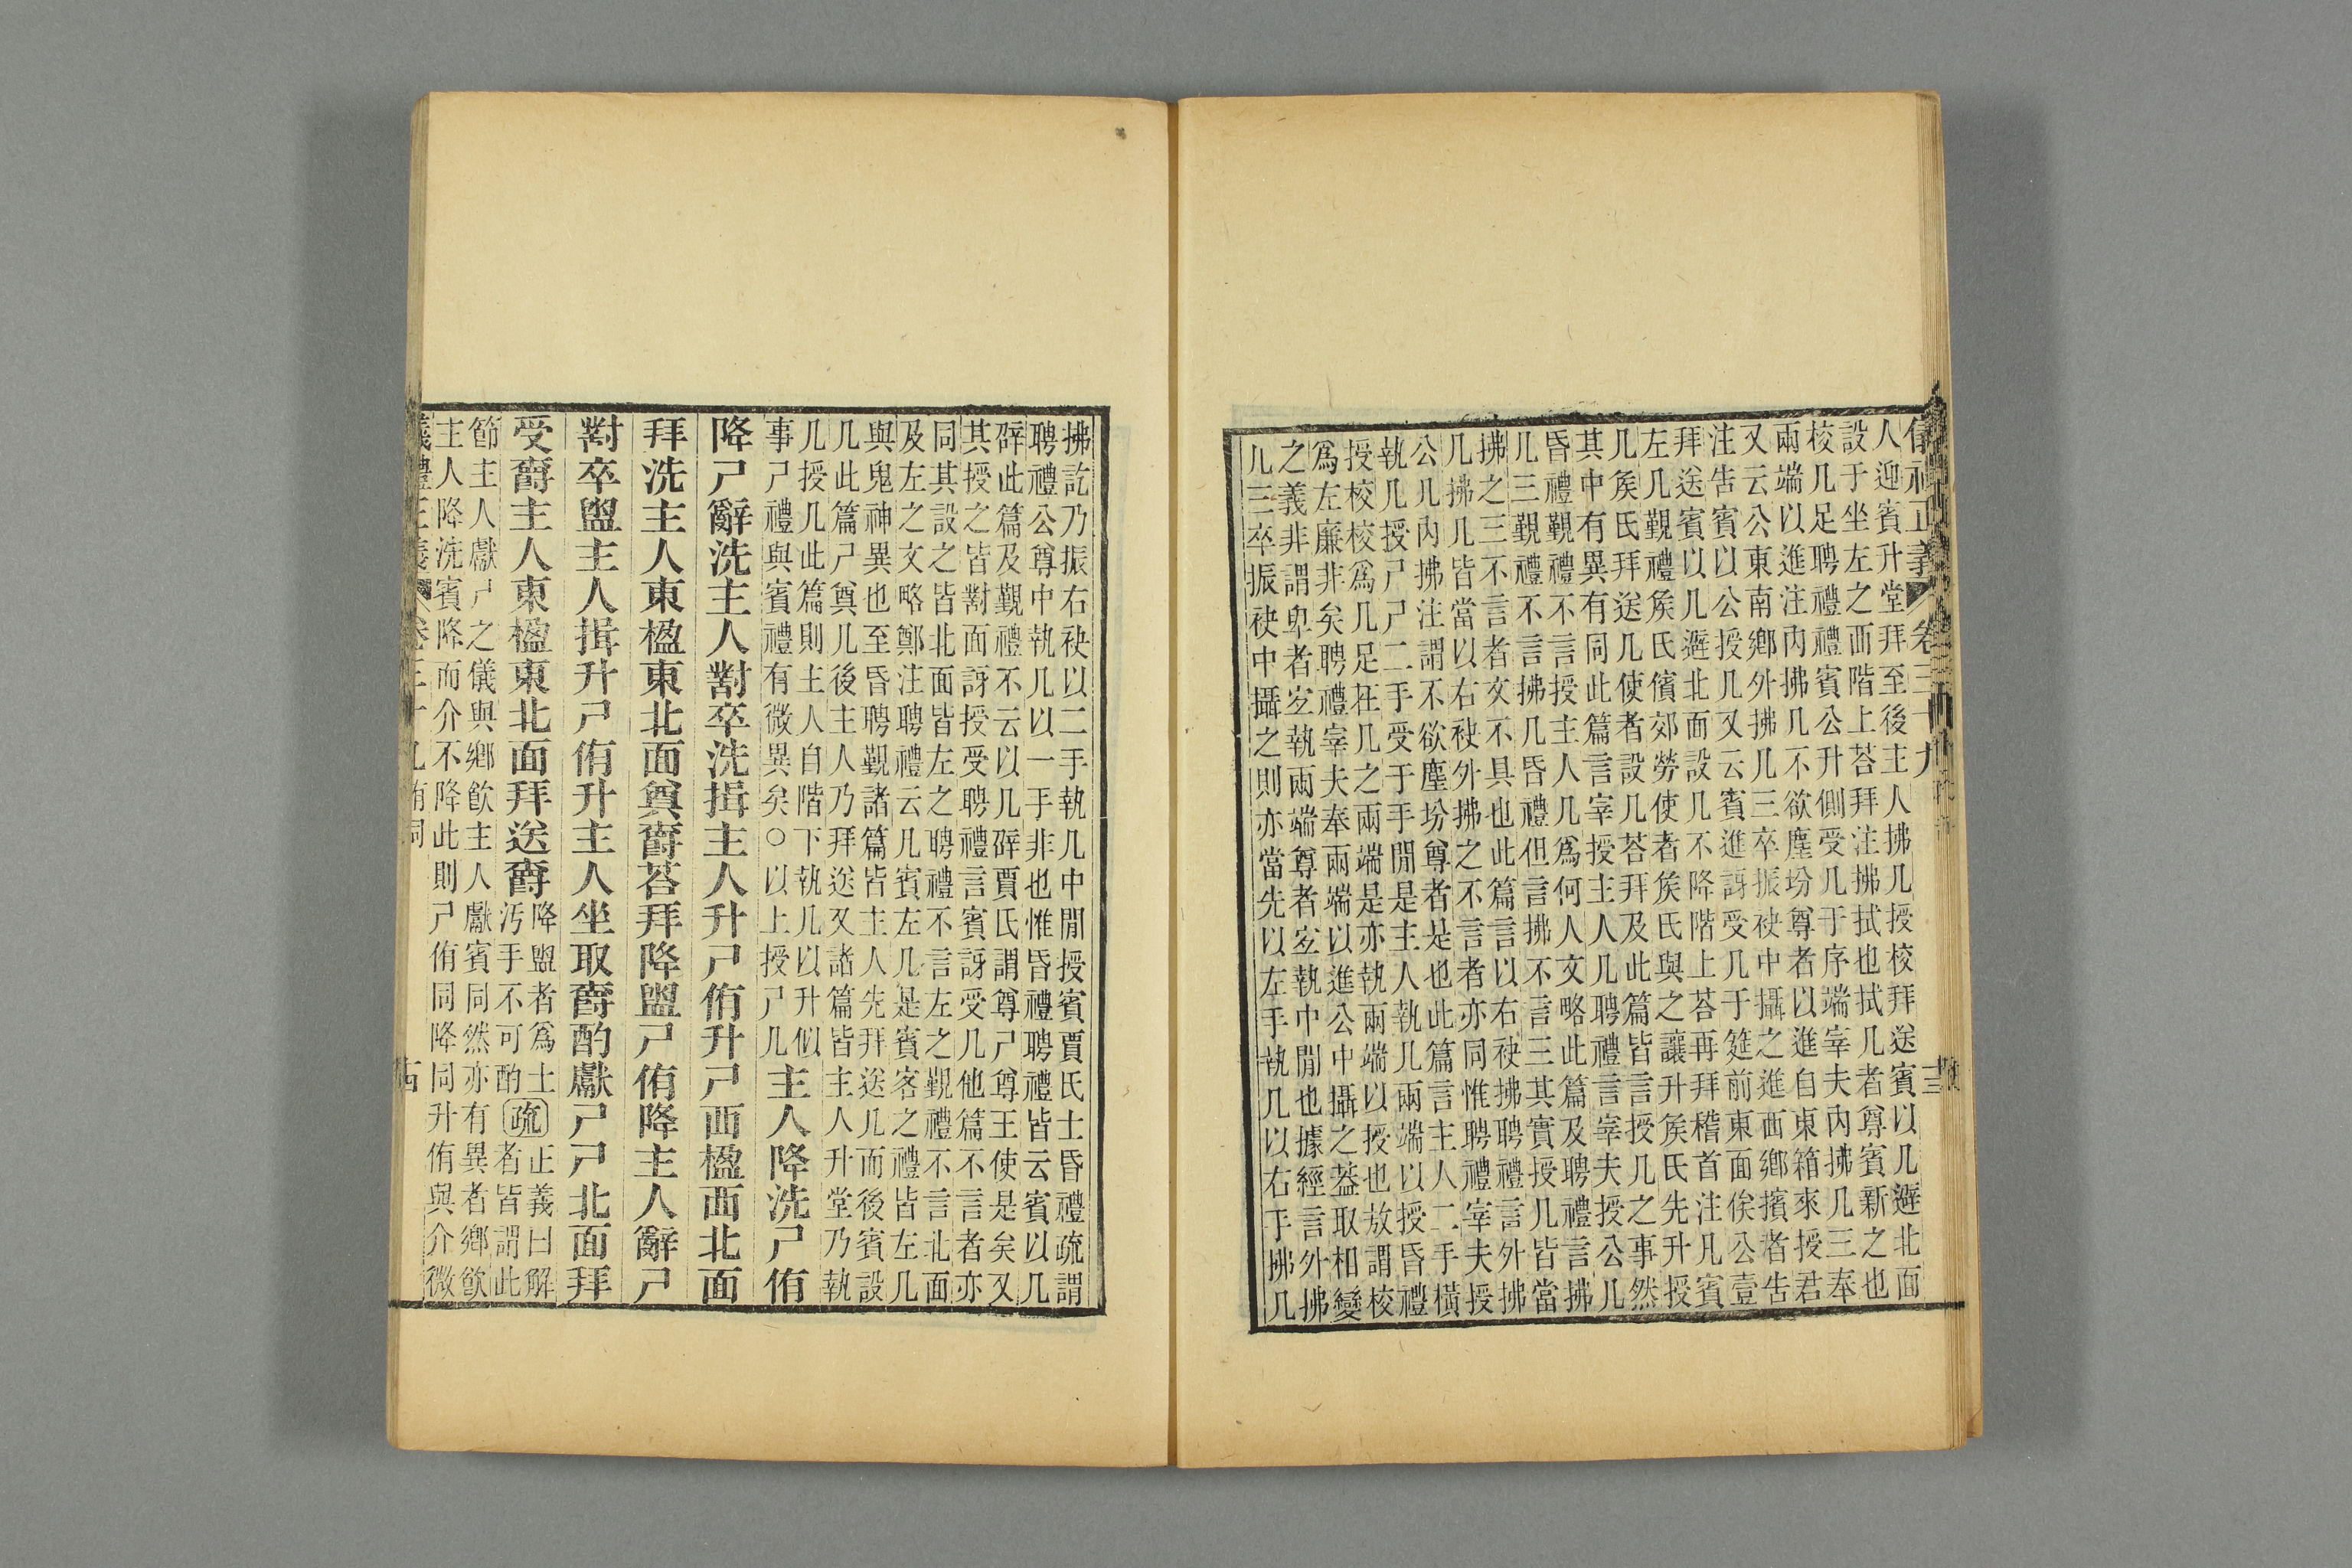 儀禮正義 卷三十九 十三
人迎賓升堂拜至後主人拂几授校拜送賓以几避北面
設于坐左之西階上荅拜注拂拭也拭几者尊賓新之也
校几足聘禮禮賓公升側受几于序端宰夫內拂几三奉
兩端以進注內拂几不欲塵坋尊者以進自東箱來授君
又云公東南鄉外拂几三卒振袂中攝之進西鄉擯者告
注告賓以公授几又云賓進訝受几于筵前東面俟公壹
拜送賓以几避北面設几不降階上荅再拜稽首注凡賓
左几覲禮矦氏儐郊勞使者矦氏與之讓升矦氏先升授
几矦氏拜送几使者設几荅拜及此篇皆言授几之事然
其中有異有同此篇言宰授主人几聘禮言宰夫授公几
昏禮覲禮不言授主人几爲何人文略此篇及聘禮言拂
几三覲禮不言拂几昏禮但言拂不言三其實授几皆當
拂之三不言者文不具也此篇言以右袂拂聘禮言外拂
几拂几皆當以右袂外拂之不言者亦同惟聘禮宰夫授
公几內拂注謂不欲塵坋尊者是也此篇言主人二手橫
執几授尸尸二手受于手閒是主人執几兩端以授昏禮
授校校爲几足在几之兩端是亦執兩端以授也放謂校
爲左廉非矣聘禮宰夫奉兩端以進公中攝之葢取相變
之義非謂卑者宐執兩端尊者宐執中閒也據經言外拂
几三卒振袂中攝之則亦當先以左手執几以右手拂几
拂訖乃振右袂以二手執几中閒授賓賈氏士昏禮疏謂
聘禮公尊中執几以一手非也惟昏禮聘禮皆云賓以几
辟此篇及覲禮不云以几辟賈氏謂尊尸尊王使是矣又
其授之皆對面訝授受聘禮言賓訝受几他篇不言者亦
同其設之皆北面皆左之聘禮不言左之覲禮不言北面
及左之文略鄭注聘禮云几賓左几是賓客之禮皆左几
與鬼神異也至昏聘覲諸篇皆主人先拜送几而後賓設
几此篇尸奠几後主人乃拜送又諸篇皆主人升堂乃執
几授几此篇則主人自階下執几以升似
事尸禮與賓禮有微異矣○以上授尸几
主人降洗尸侑
降尸辭洗主人對卒洗揖主人升尸侑升尸西楹西北面
拜洗主人東楹東北面奠爵荅拜降盥尸侑降主人辭尸
對卒盥主人揖升尸侑升主人坐取爵酌獻尸尸北面拜
受爵主人東楹東北面拜送爵
降盥者爲土
汚手不可酌
疏
正義曰解
者皆謂此
節主人獻尸之儀與鄉飮主人獻賓同然亦有異者鄉飮
主人降洗賓降而介不降此則尸侑同降同升侑與介微